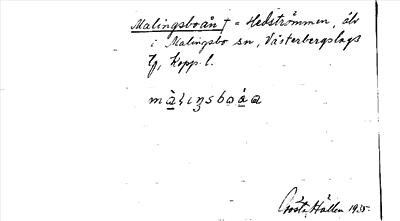 Malingsboån † = Hedströmmen, älv
i Malingsbo sn, Västerbergslags
tg, Kopp. l.
Gösta Hallén 1935.